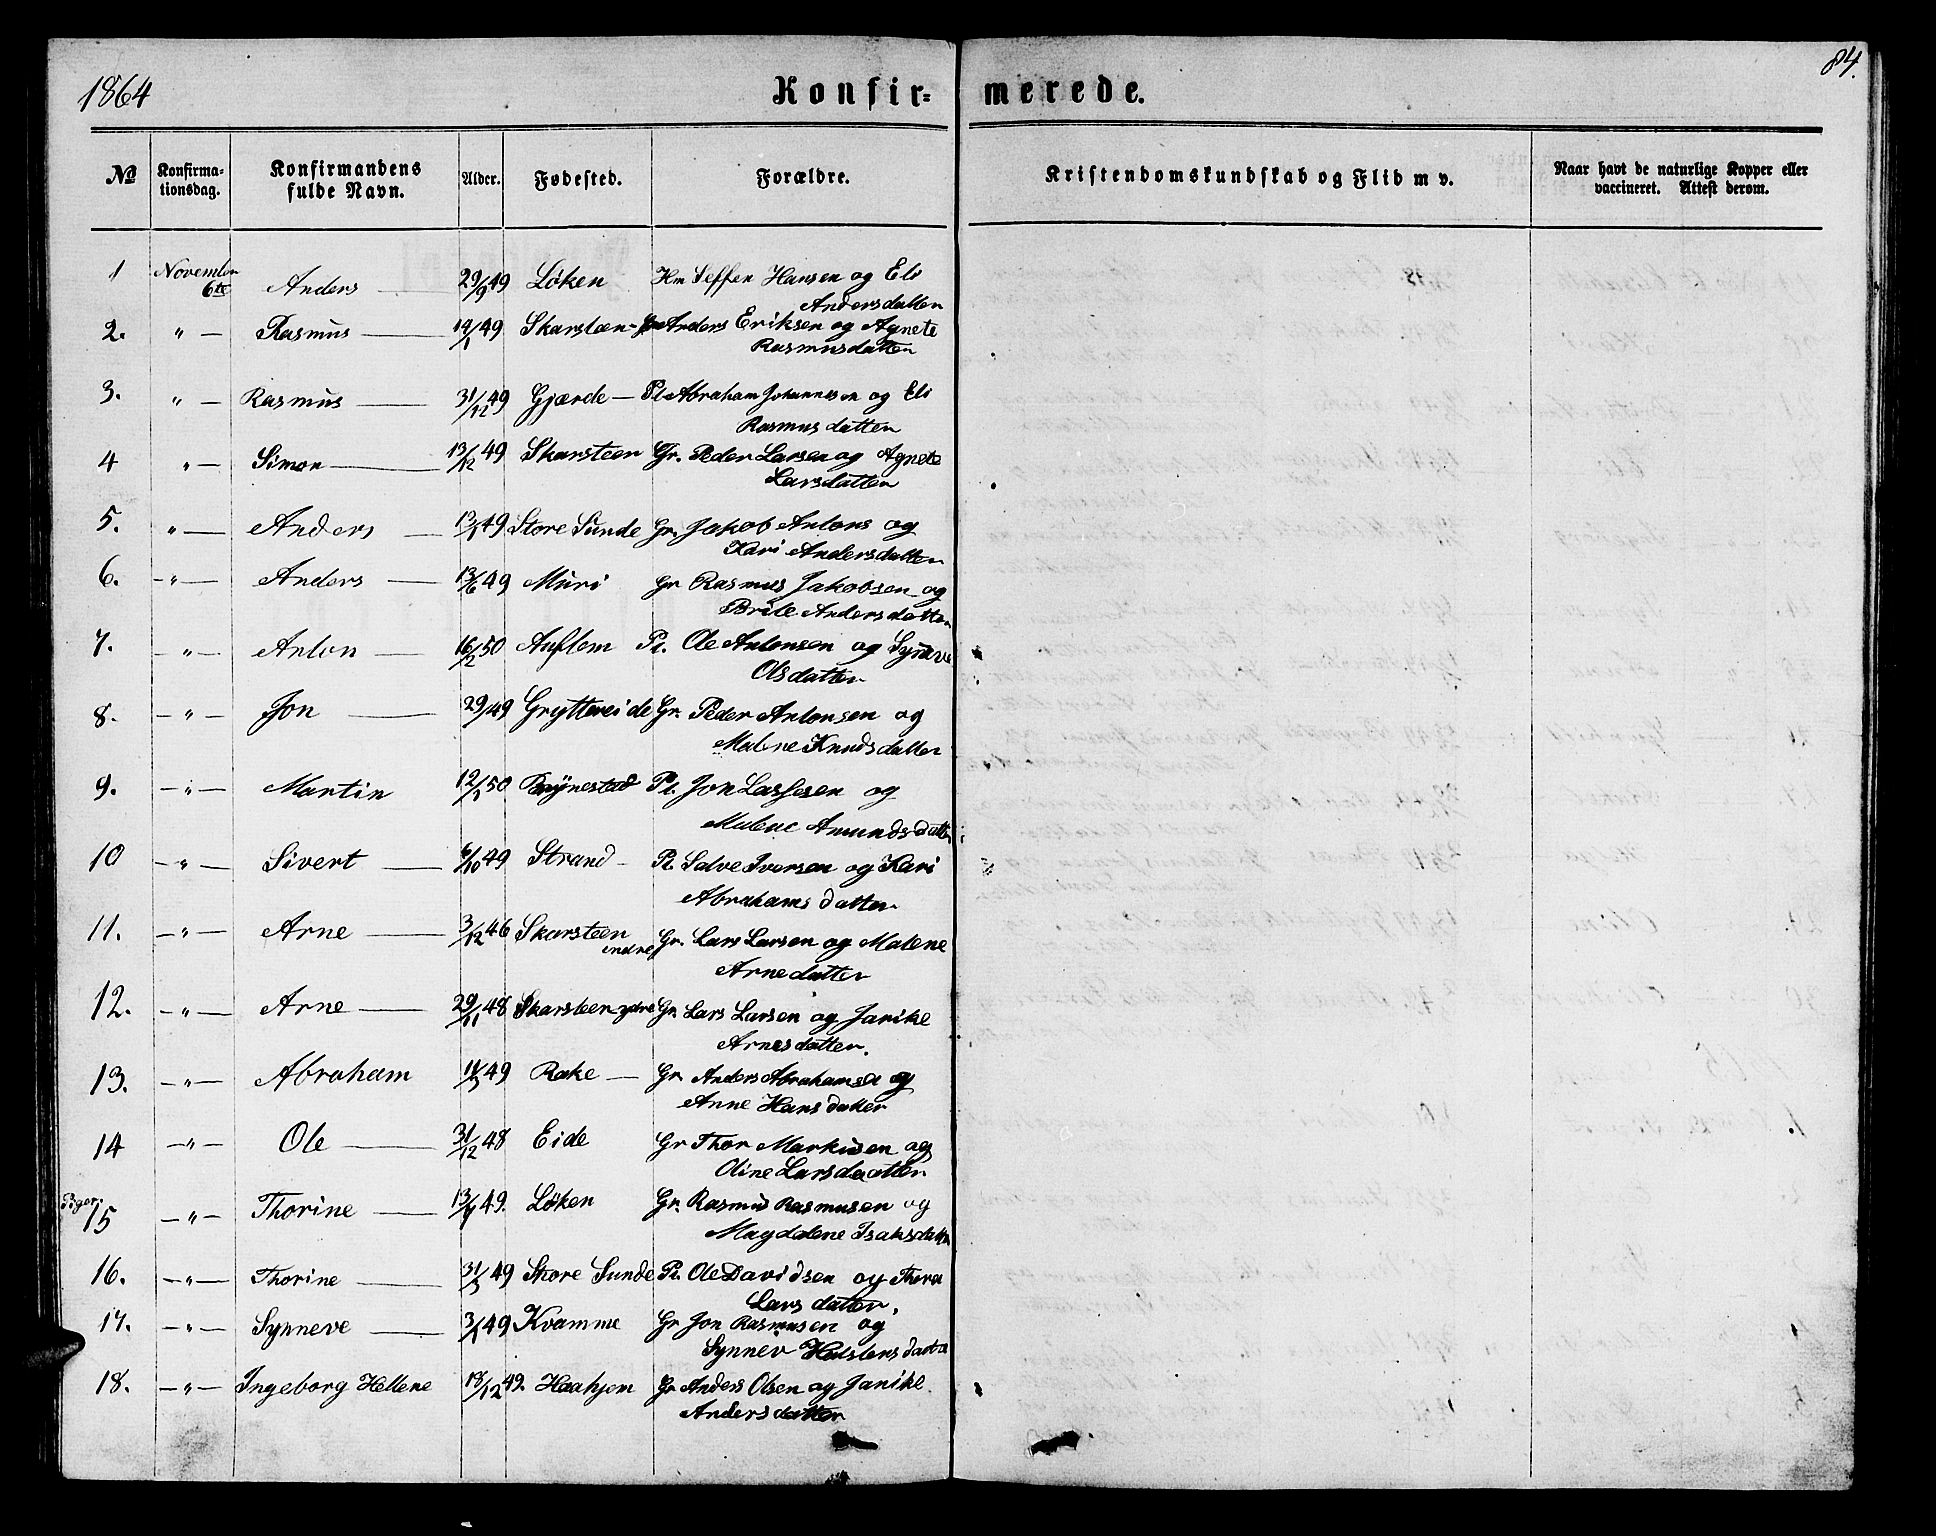 1864 Konfir= merede. 84.
№ Konfirma- Konfirmandens Alder. Fødested. Forældre. Kristendomskundskab og Flid m v. Naar havt de naturlige Kopper eller
tionsdag. fulde Navn. vaccineret. Attest derom.
1 November Anders 29/9 49 Løken Hm Seffen Hansen og Eli
6te Andersdatter
2. " — Rasmus 14/1 49 Skarsteen Anders Eriksen og Agnete
Rasmusdatter
3. " — Rasmus 31/12 49 Gjærde — Pl. Abraham Johannesen og Eli
Rasmusdatter
4 " — Simon 13/12 49 Skarsteen Gr. Peder Larsen og Agnete
Larsdatter
5. " — Anders 49 Store Sunde Gr. Jakob Antons og
Kari Andersdatter
6. — " — Anders 13/6 49 Muri Gr Rasmus Jakobsen og
Brite Andersdatter
7. — " — Anton 16/2 50 Auflem Pl. Ole Antonsen og Synneve
Olsdatter
8. — " — Jon 29/ 49 Grytterreide Gr. Peder Antonsen og
Malene Knudsdatter
9. — " — Martin 12/ 50 Brynestad Pl. Jon Lassesen og
Malene Amundsdatter
10 — " — Sivert 6/10 49 Strand — Pl. Salve Iversen og Kari
Abrahamsdatter
11. — " — Arne 3/12 46 Skarsteen Gr. Lars Larsen og Malene
indre Arnedatter
12. — " — Arne 29/11 48 Skarsteen ydre Gr. Lars Larsen og Janike
Arnesdatter.
13. — " — Abraham 11/ 49 Rake — Gr Anders Abrahamsen og
Anne Hansdatter
14 — " — Ole 31/12 48 Eide Gr Thor Markusen og
Oline Larsdaatter
Piger.
15 — " — Thorine 13/ 49. Løken Gr. Rasmus Rasmusen og
Magdalene Isaksdatter
16. — " — Thorine 31/ 49 Store Sunde Pl. Ole Davidsen og Thora
Larsdatter.
17. — " — Synneve 3/ 49 Kvamme Gr Jon Rasmusen og
Synnev
18. — " — Ingeborg Hellene 18/12 49. Haahjem Gr Anders Olsen og Janike
Andersdatter